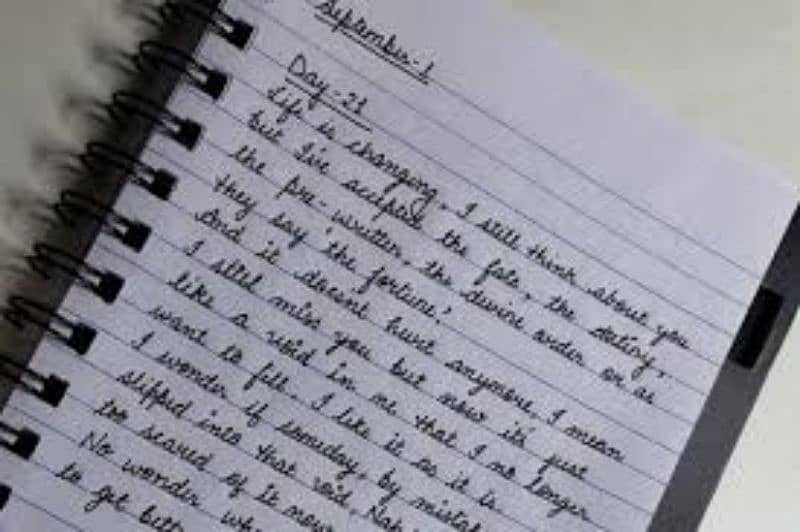 September-1
Day-21
Life is changing. I still think about you
but I've accepted the fate, the destiny,
the pre-written, the divine order or as
they say 'the fortune.'
And it doesnt hurt anymore, I mean
I still miss you but now its just
like a void in me that I no longer
want to fill. I like it as it is.
I wonder if someday, by mistake
slipped into that void, Nah
too scared of it now
No wonder why
to get bett